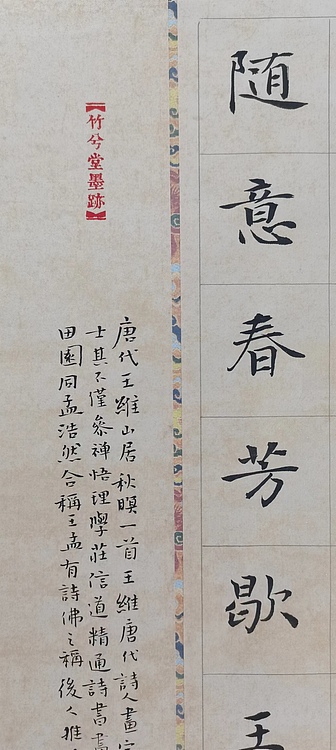 随意春芳歇王
唐代王維山居秋暝一首王維唐代詩人畫家
士其不僅參禅悟理學莊信道精通詩書畫
田園同孟浩然合稱王孟有詩佛之稱後人推
【竹兮堂墨跡】